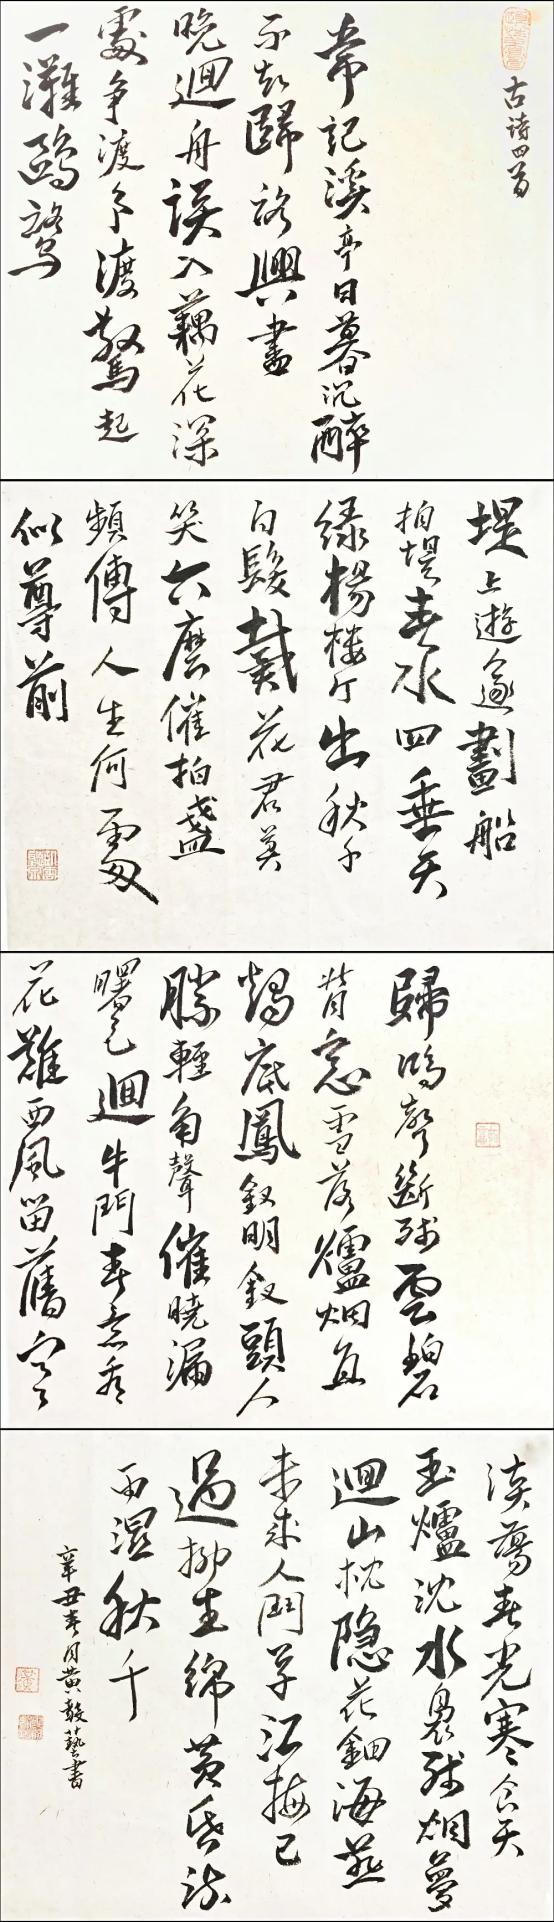 古诗四首
常記溪亭日暮沉醉
不知歸路興盡
晚迴舟誤入藕花深
處爭渡争渡驚起
一灘鷗鷺
堤上遊逐劃船
拍堤春水四垂天
绿楊楼外出秋千
白髮戴花君莫
笑六麽催拍盞
頻傳人生何處
似尊前
歸鴻聲斷殘雲碧
背窓雪落爐烟直
燭底鳳釵明釵頭人
勝輕角聲催曉漏
曙色迴牛鬥春意看
花難西風留舊寒
淡蕩春光寒食天
玉爐沈水裊殘烟夢
迴山枕隐花鈿海燕
未來人鬥草江梅已
過柳生綿黄昏疏
雨濕秋千
辛丑春月黄毅藝書